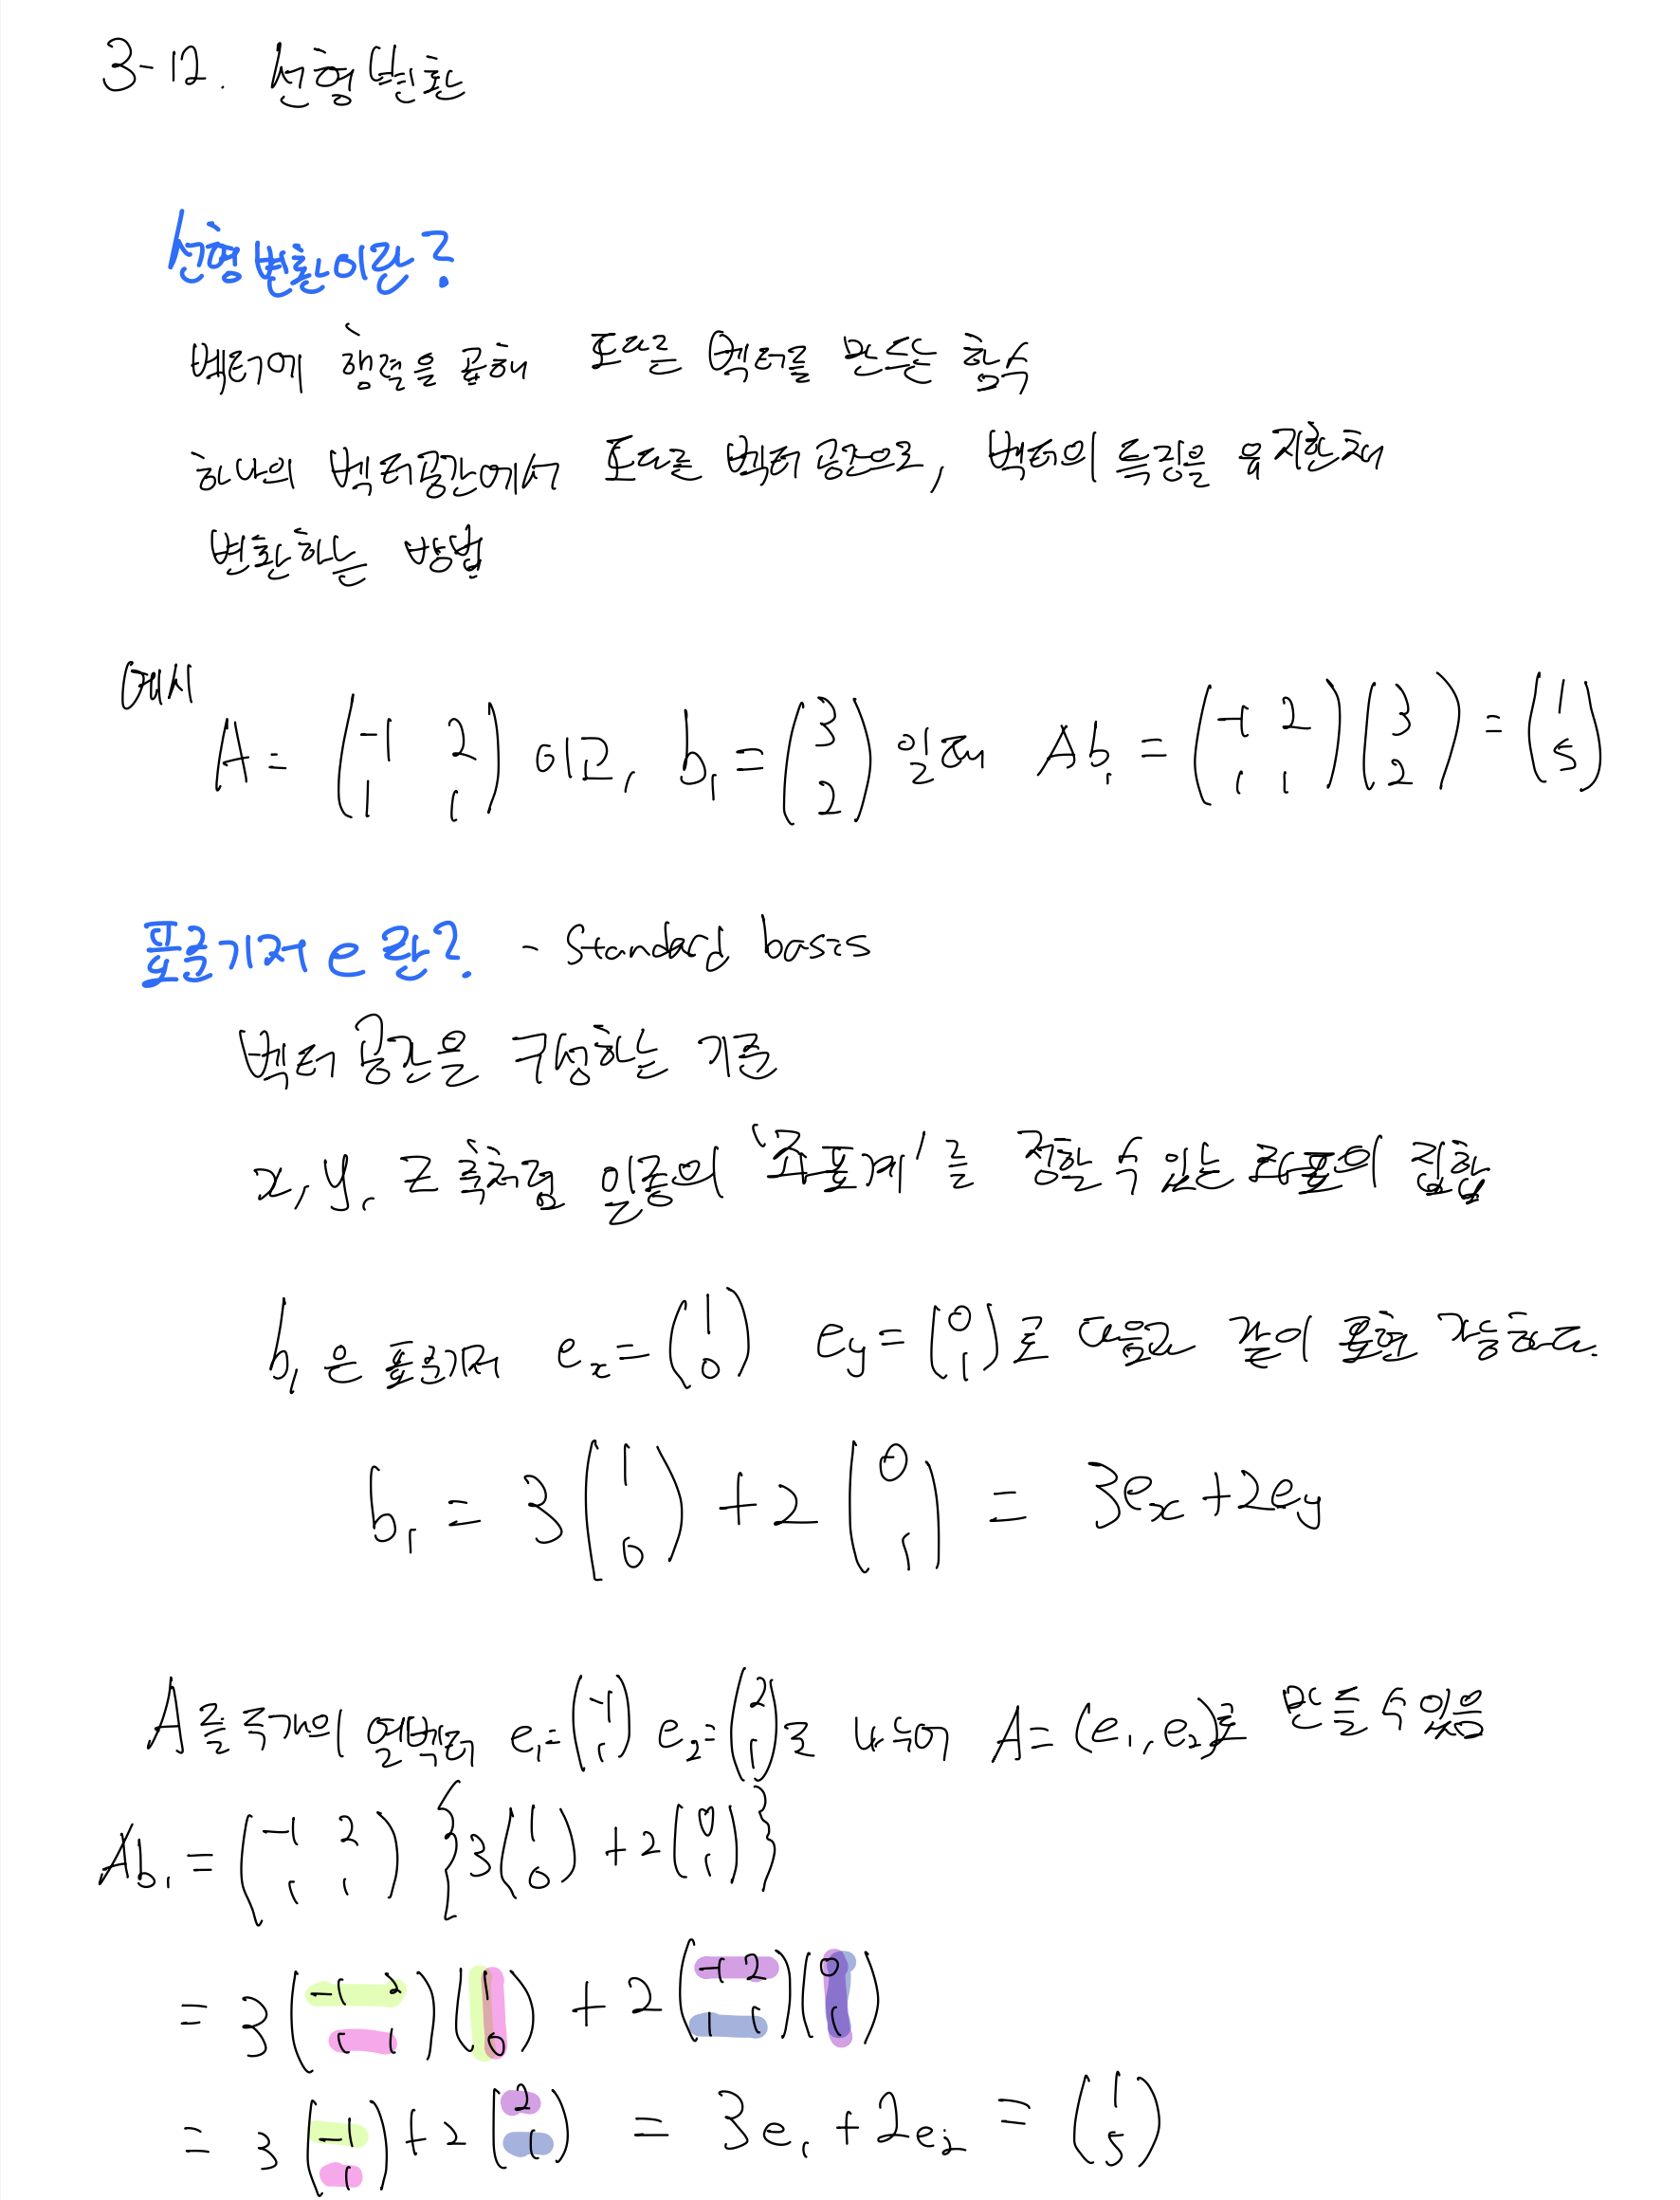 3-12. 선형변환
선형변환이란?
벡터에 행렬을 곱해 또다른 벡터를 만드는 함수
하나의 벡터공간에서 또다른 벡터 공간으로, 벡터의 특징을 유지한채
변환하는 방법
예시
A = (-1 2 / 1 1) 이고, b₁ = (3 / 2) 일때 Ab₁ = (-1 2 / 1 1)(3 / 2) = (1 / 5)
표준기저 e란? - standard basis
벡터 공간을 구성하는 기준
x, y, z 축처럼 일종의 '좌표계'를 정할 수 있는 좌표의 집합
b₁은 표준기저 eₓ = (1 / 0) e_y = (0 / 1)로 다음과 같이 표현 가능하다.
b₁ = 3(1 / 0) + 2(0 / 1) = 3eₓ + 2e_y
A를 두개의 열벡터 e₁ = (-1 / 1) e₂ = (2 / 1)로 나누어 A = (e₁, e₂)로 만들 수 있음
Ab₁ = (-1 2 / 1 1) {3(1 / 0) + 2(0 / 1)}
= 3(-1 2 / 1 1)(1 / 0) + 2(-1 2 / 1 1)(0 / 1)
= 3(-1 / 1) + 2(2 / 1) = 3e₁ + 2e₂ = (1 / 5)